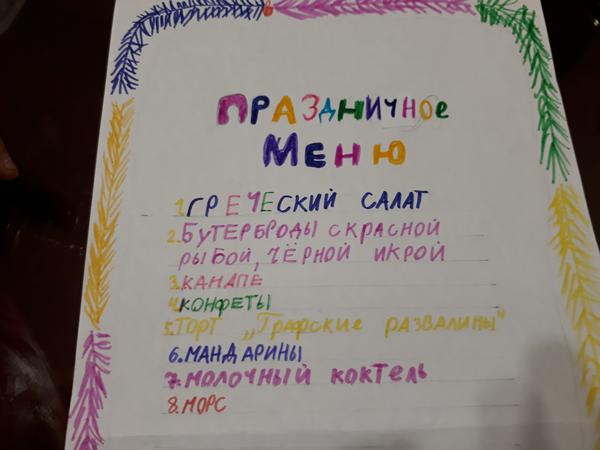 ПРАЗДНИЧНОЕ
МЕНЮ
1. ГРЕЧЕСКИЙ САЛАТ
2. БУТЕРБРОДЫ С КРАСНОЙ
РЫБОЙ, ЧЁРНОЙ ИКРОЙ
3. КАНАПЕ
4. КОНФЕТЫ
5. ТОРТ „Графские развалины"
6. МАНДАРИНЫ
7. МОЛОЧНЫЙ КОКТЕЛЬ
8. МОРС